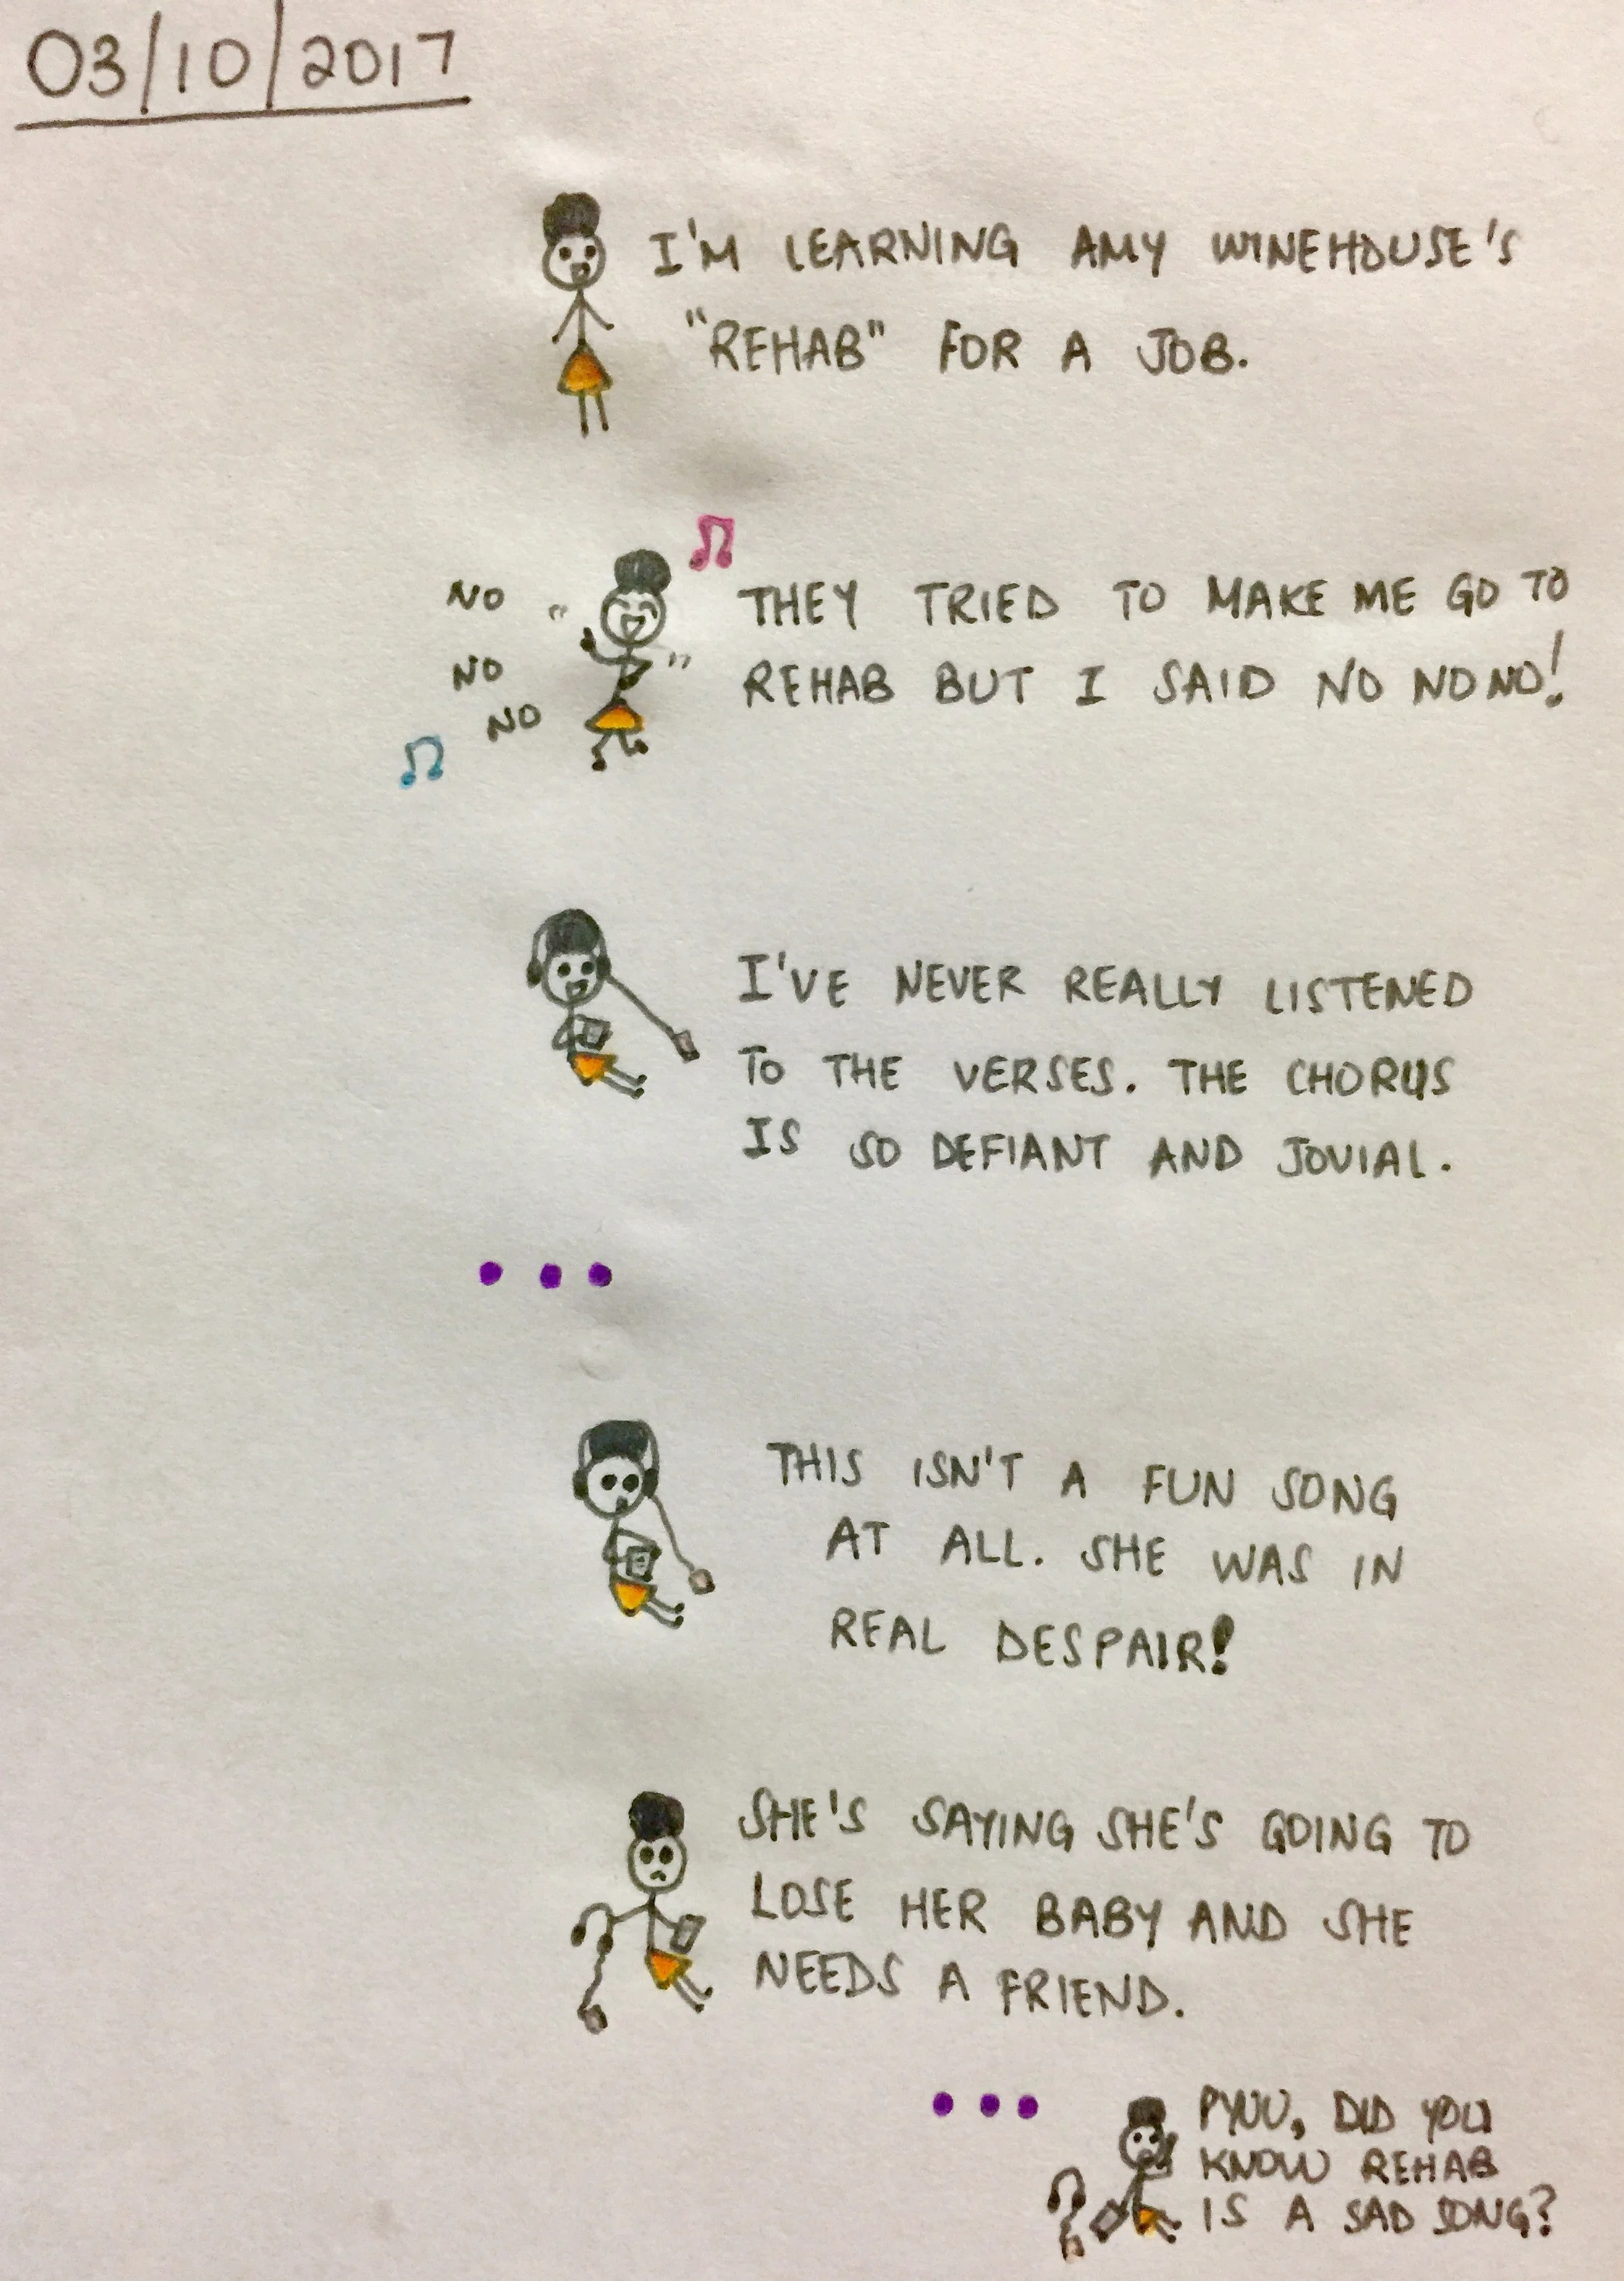 03/10/2017
I'M LEARNING AMY WINEHOUSE'S
"REHAB" FOR A JOB.
NO
NO
NO
THEY TRIED TO MAKE ME GO TO
REHAB BUT I SAID NO NO NO!
I'VE NEVER REALLY LISTENED
TO THE VERSES. THE CHORUS
IS SO DEFIANT AND JOVIAL.
...
THIS ISN'T A FUN SONG
AT ALL. SHE WAS IN
REAL DESPAIR!
SHE'S SAYING SHE'S GOING TO
LOSE HER BABY AND SHE
NEEDS A FRIEND.
...
PYUU, DID YOU
KNOW REHAB
IS A SAD SONG?